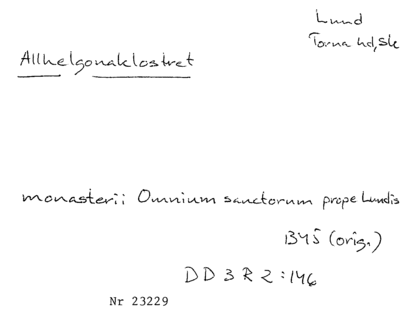 Lund
Torna hd, Sk
Allhelgonaklostret
monasterii Omnium sanctorum prope Lundis
1345 (orig.)
DD 3 R 2:146
Nr 23229